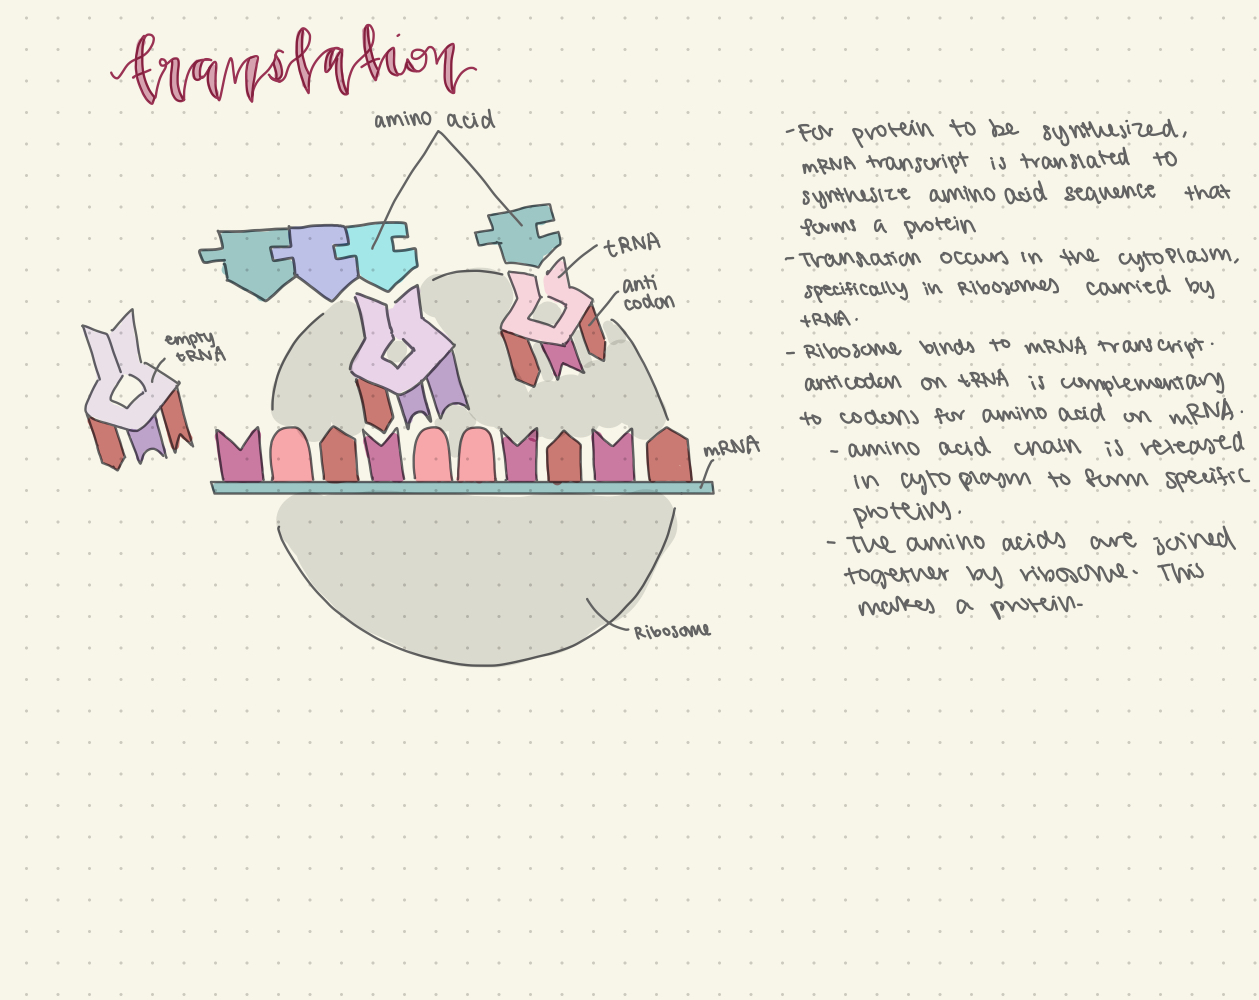 translation
amino acid
tRNA
anti
codon
empty
tRNA
mRNA
Ribosome
- For protein to be synthesized,
mRNA transcript is translated to
synthesize amino acid sequence that
forms a protein
- Translation occurs in the cytoplasm,
specifically in Ribosomes carried by
tRNA.
- Ribosome binds to mRNA transcript.
anticodon on tRNA is complementary
to codons for amino acid on mRNA.
- amino acid chain is released
in cytoplasm to form specific
proteins.
- The amino acids are joined
together by ribosome. This
makes a protein.